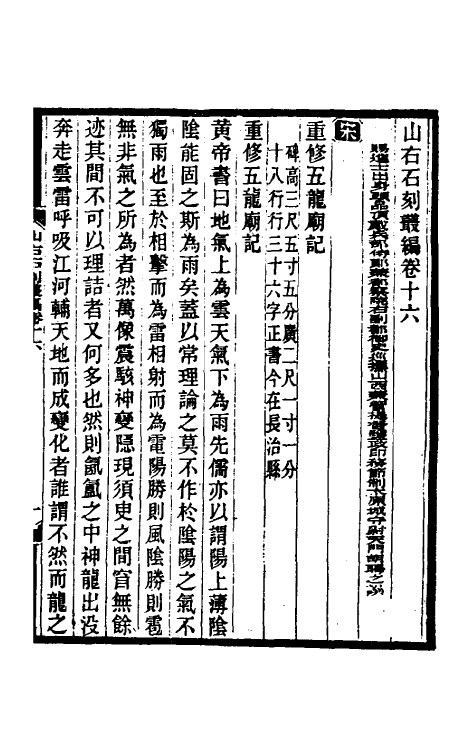 山右石刻叢編卷十六
賜進士出身頭品頂戴兵部侍郎兼都察院右副都御史巡撫山西兼管提督鹽政印務節制太原城守尉天門胡聘之撰
宋
重修五龍廟記
碑高三尺五寸五分廣二尺一寸一分
十八行行三十六字正書今在長治縣
重修五龍廟記
黃帝書曰地氣上為雲天氣下為雨先儒亦以謂陽上薄陰
陰能固之斯為雨矣蓋以常理論之莫不作於陰陽之氣不
獨雨也至於相擊而為雷相射而為電陽勝則風陰勝則雹
無非氣之所為者然萬像震駭神變隱現須史之間窅無餘
迹其間不可以理詰者又何多也然則氤氳之中神龍出沒
奔走雲雷呼吸江河輔天地而成變化者誰謂不然而龍之
山右石刻叢編卷十六
一